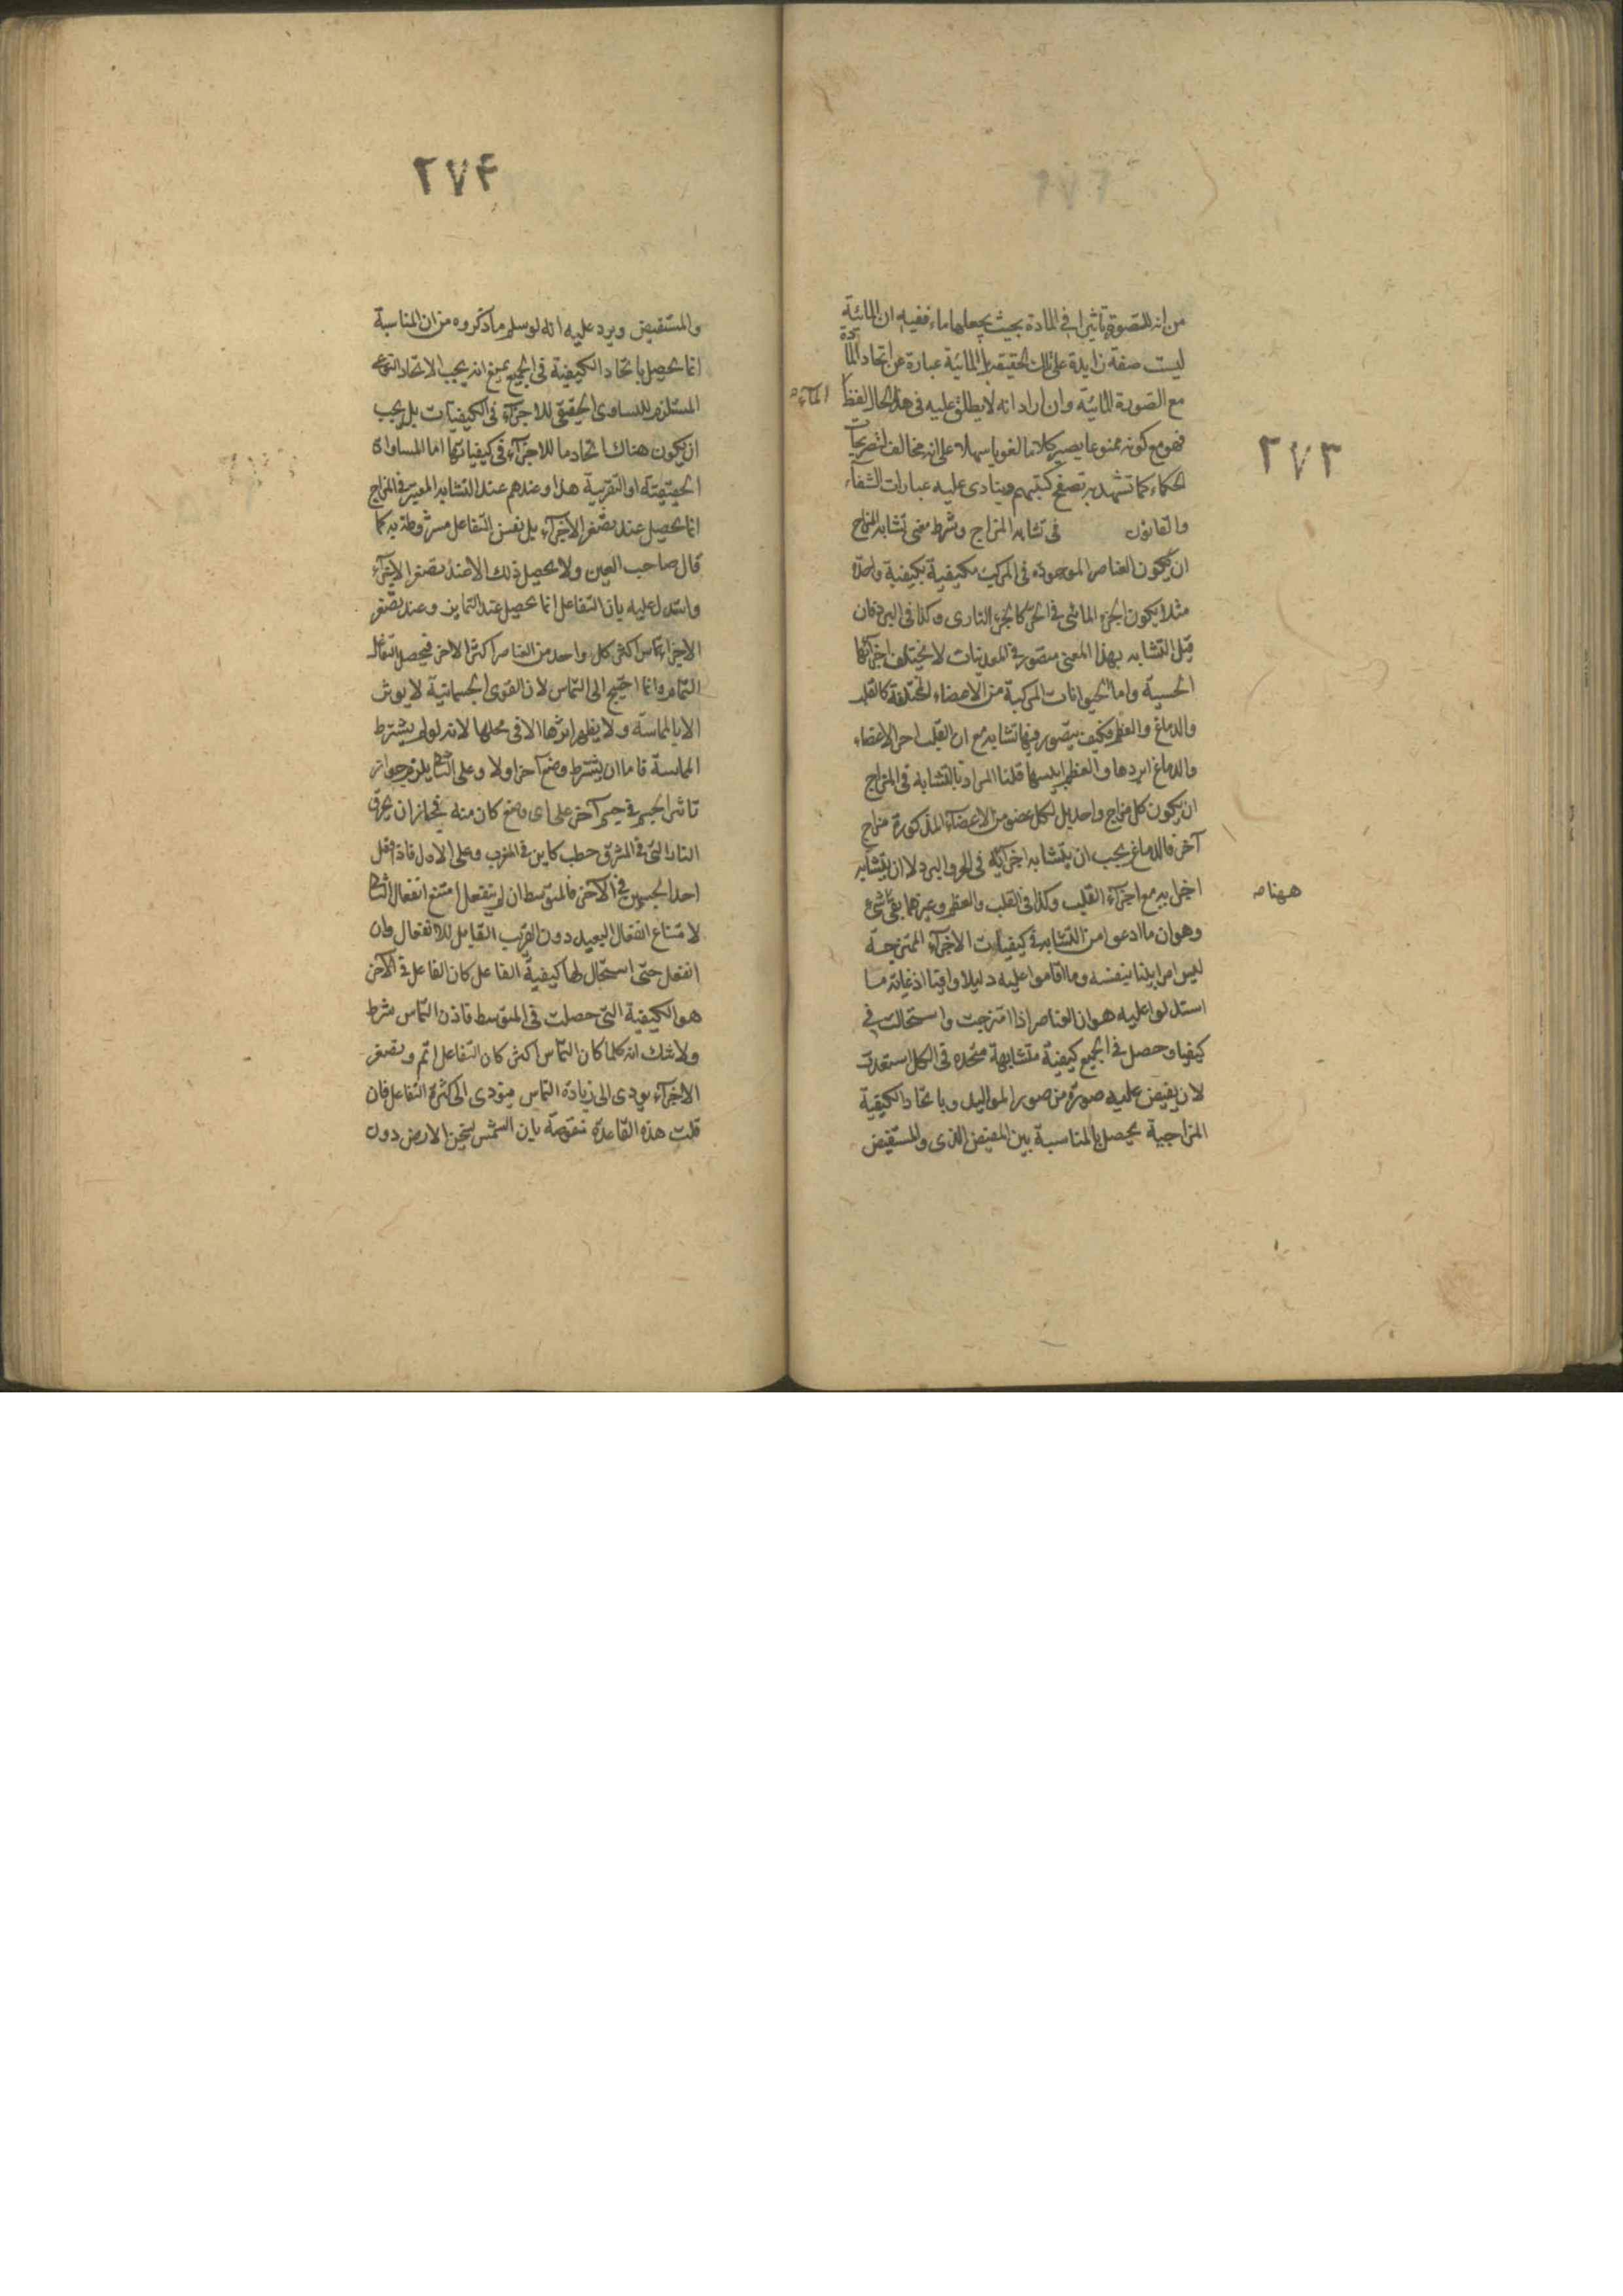 ٢٧٣
من انه للصورة تاثيرا في المادة بحيث يجعلها ماء ففيه ان المائية
ليست صفة زايدة على تلك الحقيقة بل المائية عبارة عن اتحاد المادة
مع الصورة المائية وان اراد انه لا يطلق عليه في هذا الحال لفظ الماء
فهو مع كونه ممنوعا يصير كلاما لغويا سهلا على انه مخالف لتصريحات
الحكماء كما تشهد به تصفح كتبهم وينادى عليه عبارات الشفاء
والقانون في تشابه المزاج وشرط معنى تشابه المزاج
ان يكون العناصر الموجودة في المركب مكيفية بكيفية واحدة
مثلا يكون الجزء المائى في الحر كالجزء النارى وكذا في البرد فان
قيل التشابه بهذا المعنى متصور في المعدنيات لا يختلف اجزائها
الحسية واما الحيوانات المركبة من الاعضاء المختلفة كالقلب
والدماغ والعظم فكيف يتصور فيها تشابه مع ان القلب احر الاعضاء
والدماغ ابردها والعظم ايبسها قلنا المراد بالتشابه في المزاج
ان يكون كل مزاج واحد بل لكل عضو من الاعضاء المذكورة مزاج
آخر فالدماغ يجب ان يتشابه اجزائه في الحر والبرد لا ان يتشابه
اجزاءه مع اجزاء القلب وكذا في القلب والعظم وغيرهما بقى شئ
ههنا
وهو ان ما ادعوا من التشابه في كيفيات الاجزاء الممتزجة
ليس امرا بينا بنفسه وما اقاموا عليه دليلا وافيا اذ غاية ما
استدلوا عليه هو ان العناصر اذا امتزجت واستحالت في
كيفها وحصل في الجميع كيفية متشابهة متحدة في الكل استعدت
لان يفيض عليه صورة من صور المواليد وباتحاد الكيفية
المزاجية يحصل بالمناسبة بين المفيض الذى والمستفيض
٢٧۴
والمستفيض ويرد عليه انه لو سلم ما ذكروه من ان المناسبة
انما يحصل باتحاد الكيفية في الجميع يمنع انه يجب الاتحاد النوعى
المستلزم للتساوى الحقيقى للاجزاء في الكيفيات بل يجب
ان يكون هناك اتحاد ما للاجزاء في كيفياتها اما المساواة
الحقيقية او التقريبة هذا وعندهم عند التشابه المعتبر في المزاج
انما يحصل عند تصغر الاجزاء بل نفس التفاعل مشروطة به كما
قال صاحب العين ولا يحصل ذلك الا عند تصغر الاجزاء
واستدل عليه بان التفاعل انما يحصل عند التماس وعند تصغر
الاجزاء تماس اكثر كل واحد من العناصر اكثر الاخر فيحصل التفاعل
التام وانما احتيج الى التماس لان القوى الجسمانية لا يوثر
الا بالمماسة ولا يظهر اثرها الا في محلها لانه لو لم يشترط
المماسة فاما ان يشترط وضع آخر اولا وعلى الثانى يلزم جواز
تاثير الجسم في جسم آخر على اى وضع كان منه فيجاز ان يحرق
النار التى في المشرق حطب كاين في المغرب وعلى الاول فاذا فعل
احد الجسمين في الآخر فالمتوسط ان لم ينفعل امتنع انفعال الثانى
لامتناع انفعال البعيد دون القريب القابل للانفعال وان
انفعل حتى استحال لها كيفية الفاعل كان الفاعل في الآخر
هو الكيفية التى حصلت في المتوسط فاذن التماس شرط
ولا شك انه كلما كان التماس اكثر كان التفاعل اتم وتصغر
الاجزاء يودى الى زيادة التماس فيودى الى كثرة التفاعل فان
قلت هذه القاعدة منقوضة بان الشمس يسخن الارض دون